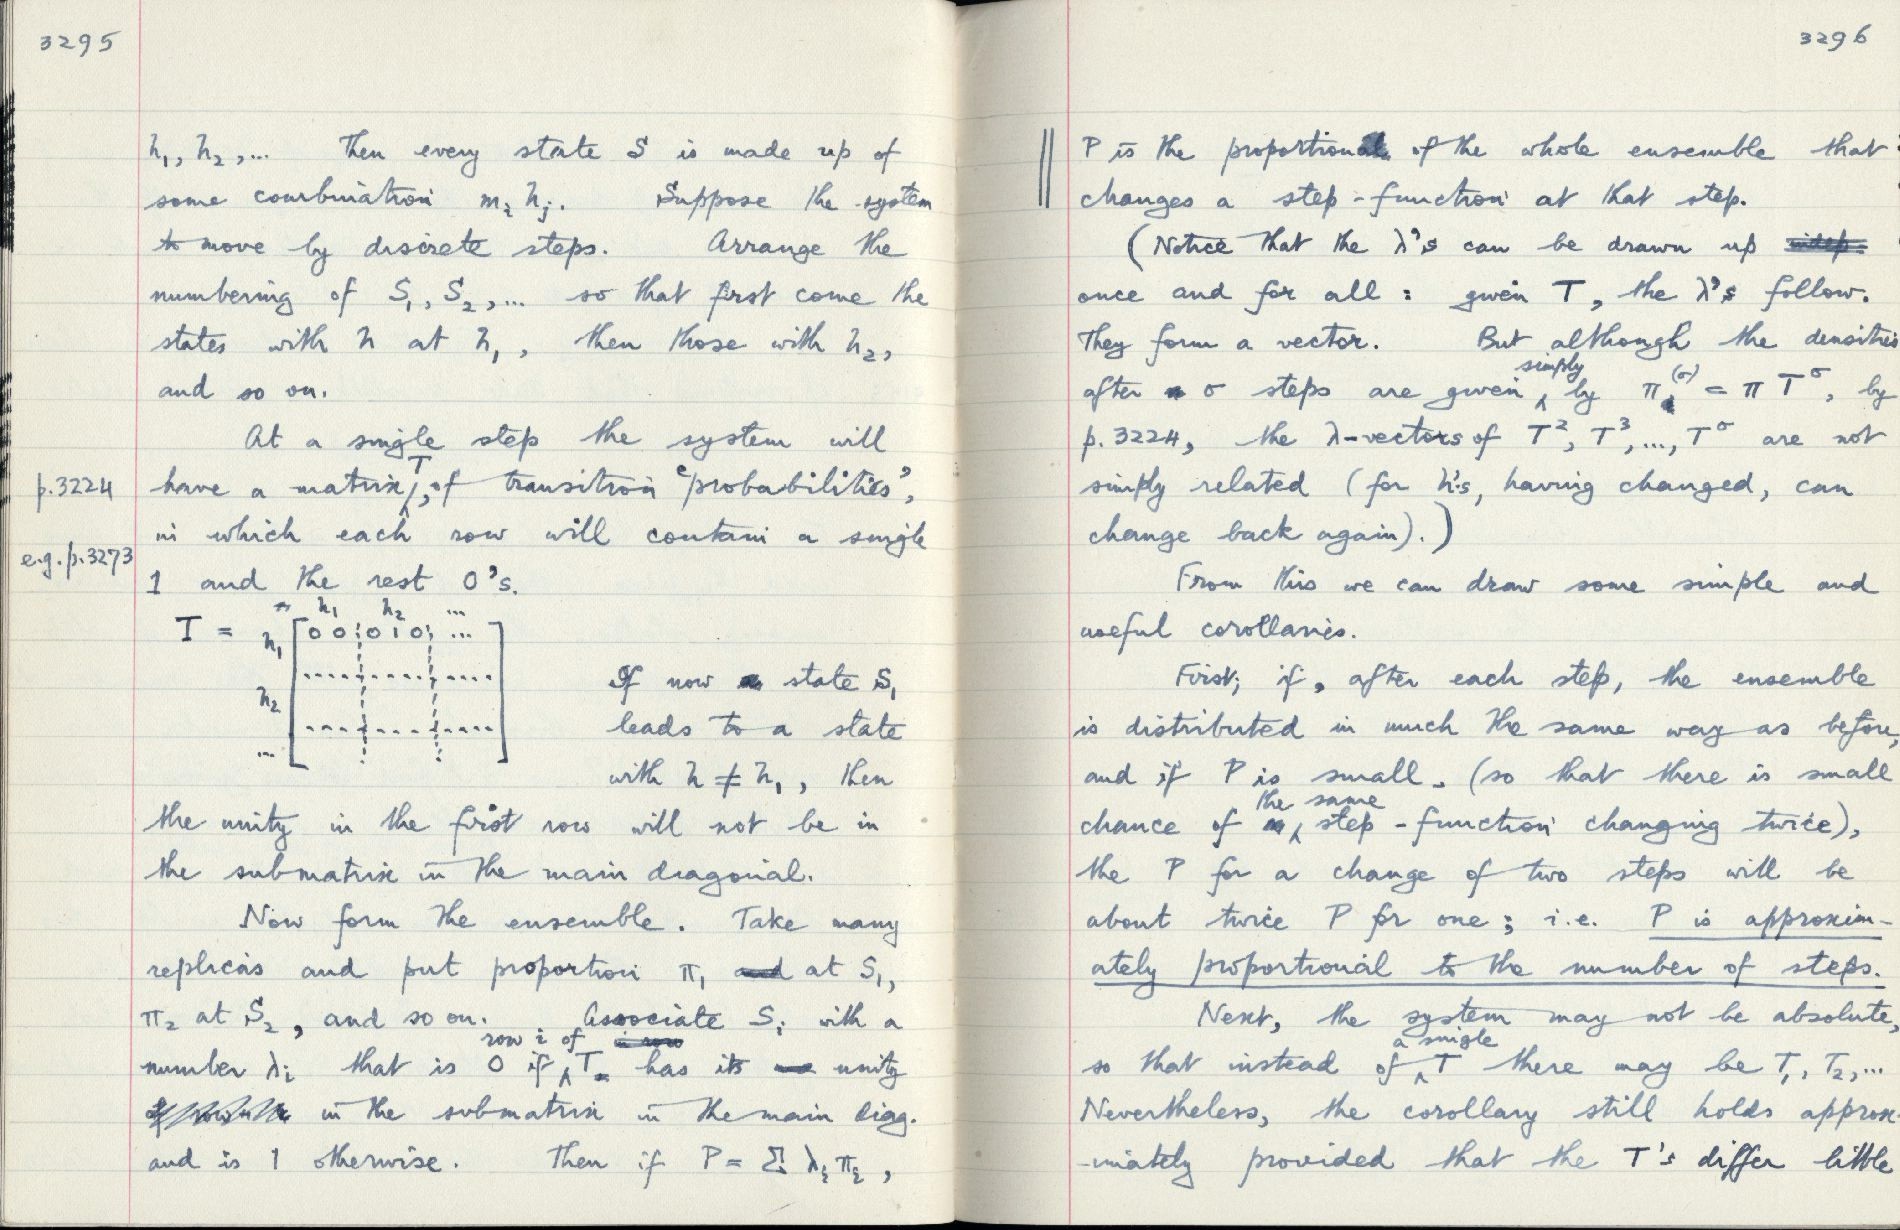 3295
h₁, h₂, ... Then every state S is made up of
some combination mᵢ hⱼ. Suppose the system
to move by discrete steps. Arrange the
numbering of S₁, S₂, ... so that first come the
states with h at h₁, then those with h₂,
and so on.
At a single step the system will
p.3224 have a matrix, T, of transition "probabilities",
in which each row will contain a single
e.g. p.3273
1 and the rest 0's.
h₁ h₂ ...
T = h₁ [0 0 0 1 0 ...]
h₂
...
If now state S₁
leads to a state
with h ≠ h₁, then
the unity in the first row will not be in
the submatrix in the main diagonal.
Now form the ensemble. Take many
replicas and put proportion π₁ at S₁,
π₂ at S₂, and so on. Associate Sᵢ with a
number λᵢ that is 0 if row i of T has its unity
in the submatrix in the main diag.
and is 1 otherwise. Then if P = Σ λᵢπᵢ,
3296
P is the proportion of the whole ensemble that
changes a step-function at that step.
(Notice that the λ's can be drawn up
once and for all: given T, the λ's follow.
They form a vector. But although the densities
after σ steps are given simply by π⁽σ⁾ = π Tσ, by
p. 3224, the λ-vectors of T², T³, ..., Tσ are not
simply related (for h's, having changed, can
change back again).)
From this we can draw some simple and
useful corollaries.
First; if, after each step, the ensemble
is distributed in much the same way as before,
and if P is small, (so that there is small
chance of the same step-function changing twice),
the P for a change of two steps will be
about twice P for one; i.e. P is approxim-
ately proportional to the number of steps.
Next, the system may not be absolute,
so that instead of a single T there may be T₁, T₂, ...
Nevertheless, the corollary still holds approx-
-imately provided that the T's differ little